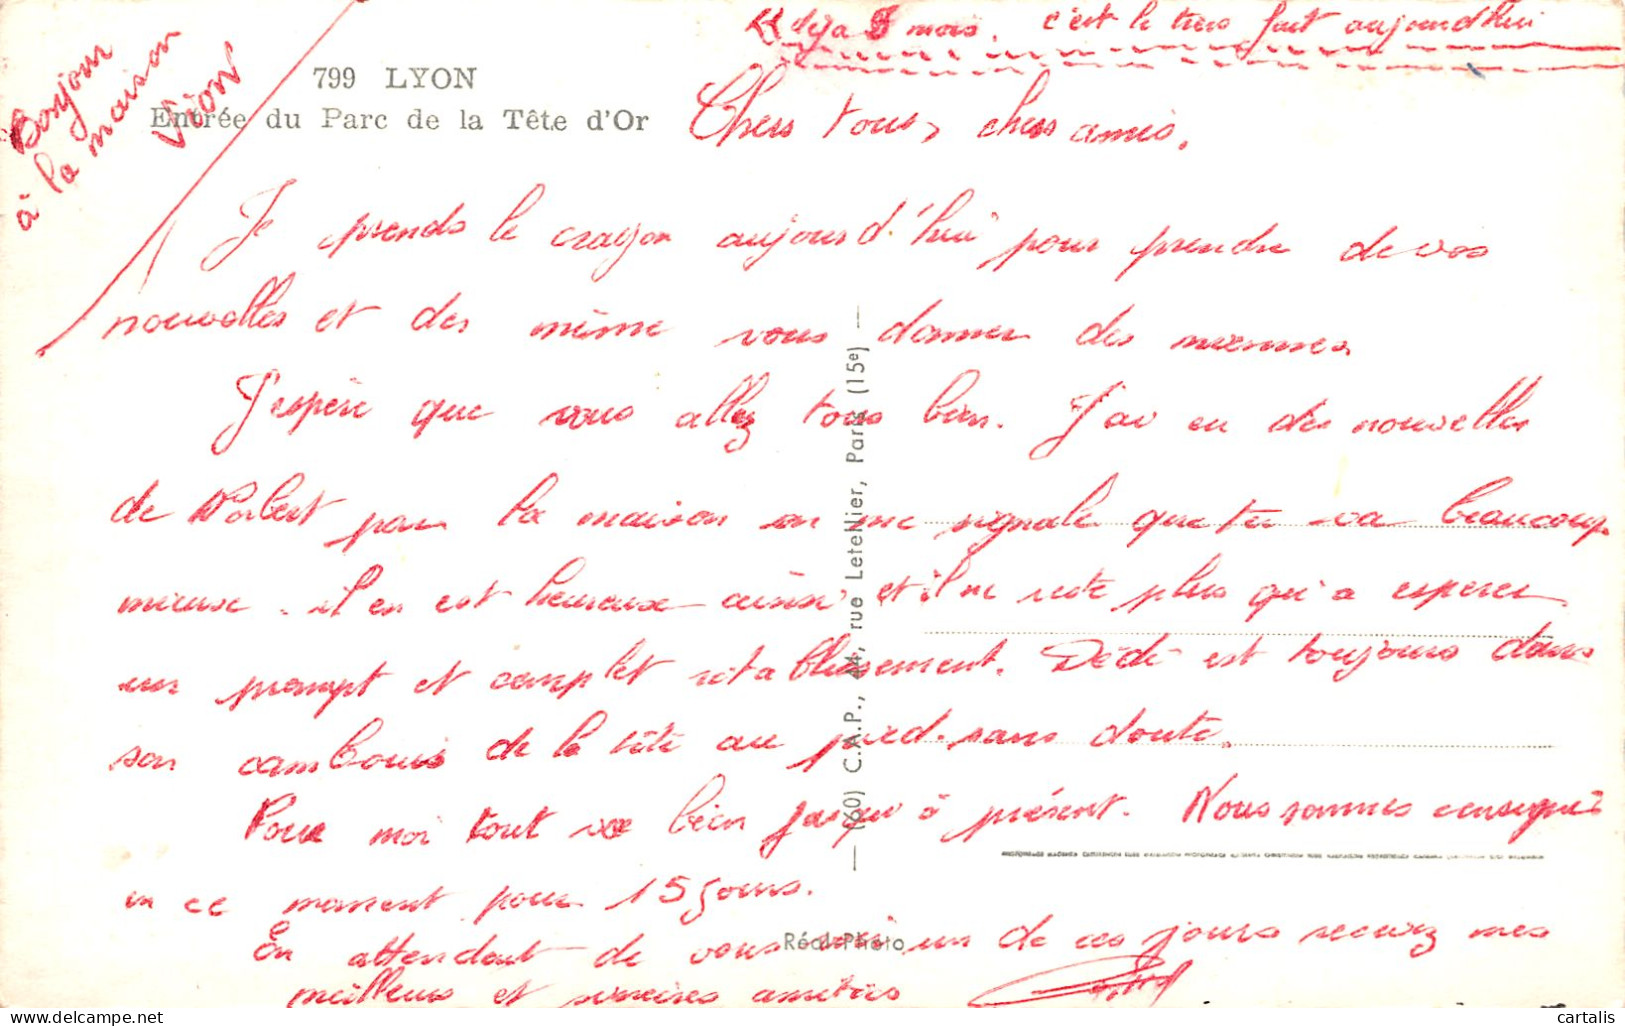 déjà 5 mois. c'est le tiers fait aujourd'hui
Bonjour
à la maison
VION
799 LYON
Entrée du Parc de la Tête d'Or
Chers tous, chers amis,
Je prends le crayon aujourd'hui pour prendre de vos
nouvelles et des même vous donner des miennes
J'espère que vous allez tous bien. J'ai eu des nouvelles
de Norbert par la maison on me signale que tu va beaucoup
mieux. il en est heureux ainsi et il ne reste plus qu'a esperer
un prompt et complet rétablissement. Dédé est toujours dans
son cambouis de la tête au pied. sans doute.
Pour moi tout va bien jusqu'à présent. Nous sommes consignés
en ce moment pour 15 jours.
En attendant de vous un de ces jours recevez mes
meilleurs et sincères amitiés
(60) C.A.P., 44, rue Letellier, Paris (15e)
Réal-Photo
cartalis